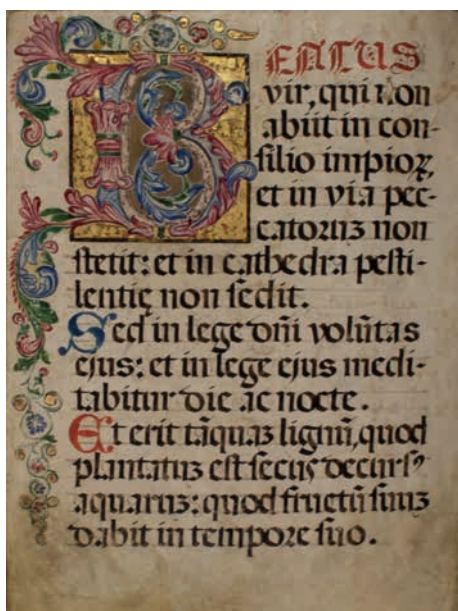 BEATUS
vir, qui non
abiit in con-
silio impioꝝ,
et in via pec-
catoruꝫ non
stetit: et in cathedra pesti-
lentię non sedit.
Sed in lege dñi volũtas
ejus: et in lege ejus medi-
tabitur die ac nocte.
Et erit tãquaꝫ lignũ, quod
plantatuꝫ est secus decursꝰ
aquaruꝫ: quod fructũ suuꝫ
dabit in tempore suo.